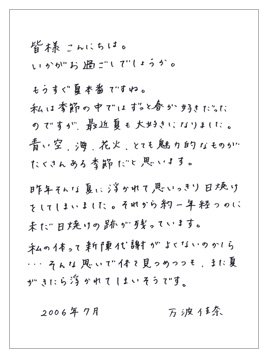 皆様こんにちは。
いかがお過ごしでしょうか。
もうすぐ夏本番ですね。
私は季節の中ではずっと春が好きだった
のですが、最近夏も大好きになりました。
青い空、海、花火、とても魅力的なものが
たくさんある季節だと思います。
昨年そんな夏に浮かれて思いっきり日焼け
をしてしまいました。それから約一年経つのに
未だ日焼けの跡が残っています。
私の体って新陳代謝がよくないのかしら
…そんな思いで体を見つめつつも、また夏
がきたら浮かれてしまいそうです。
2006年7月 万波佳奈